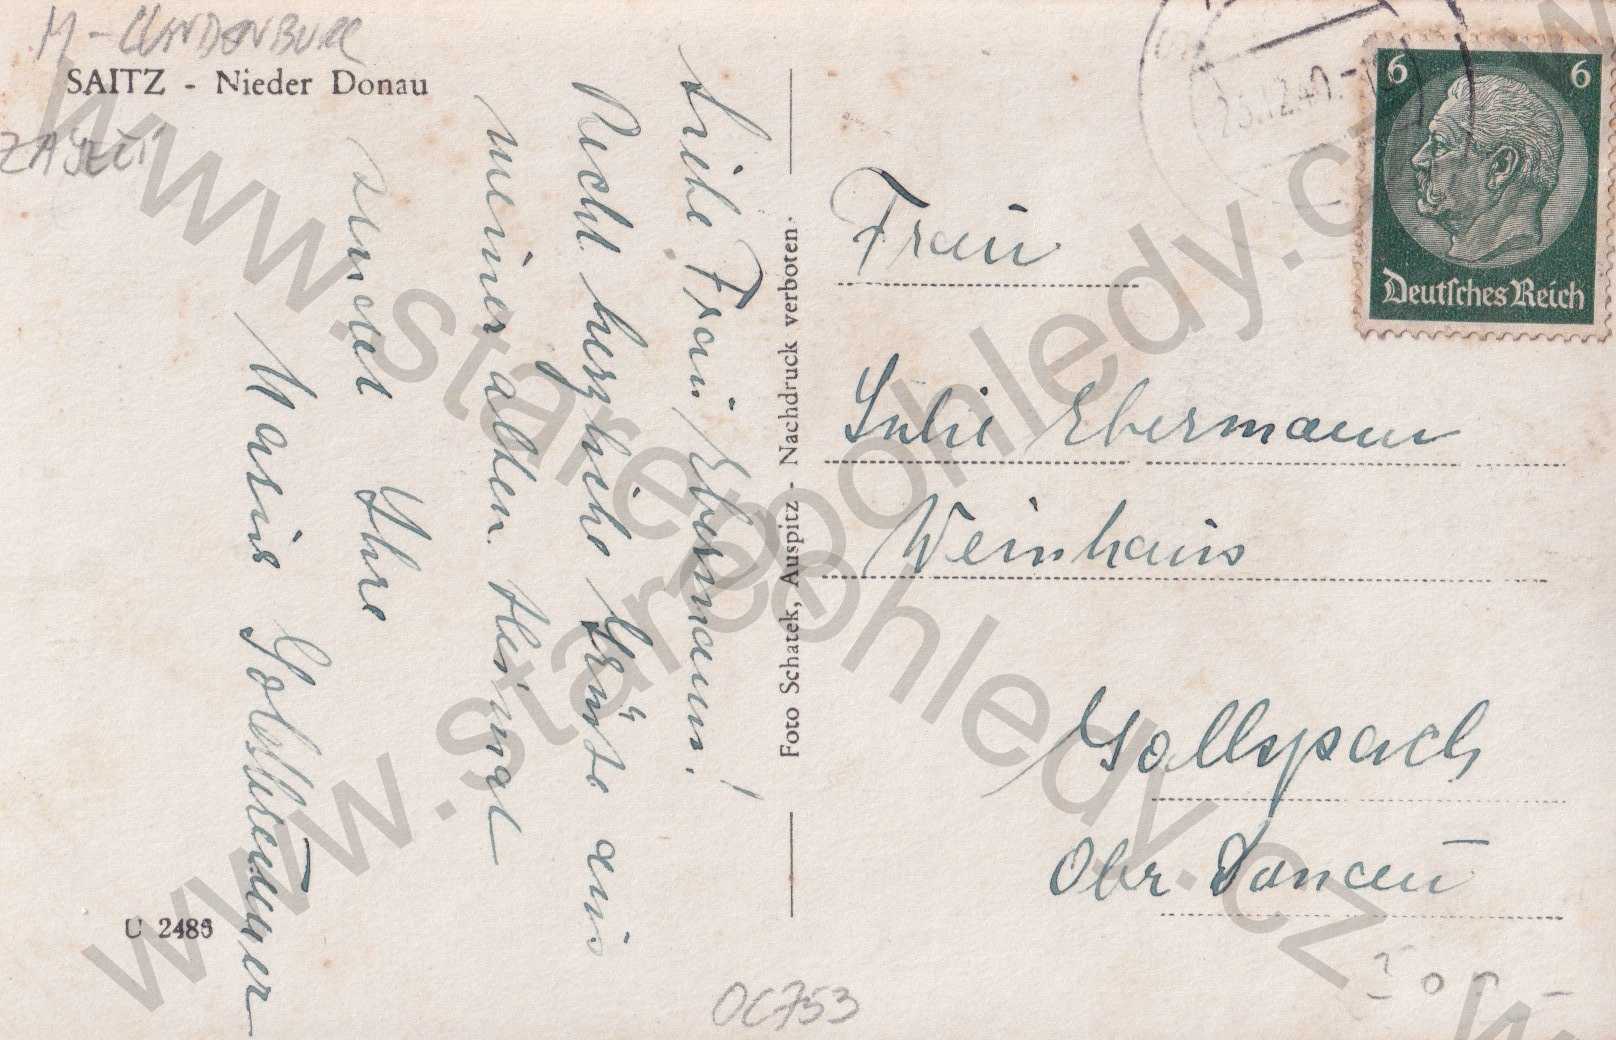 M - LUNDENBURG
SAITZ - Nieder Donau
ZAJEČÍ
Liebe Frau Ebermann!
Recht herzliche Grüße aus
meiner alten Heimat
sendet Ihre
Maria
U 2485
Foto Schatek, Auspitz - Nachdruck verboten.
23.12.40.
6 6
Deutsches Reich
Frau
Julie Ebermann
Weinhaus
Gallspach
Obr Donau
OC753
www.starepohledy.cz
www.starepohledy.cz